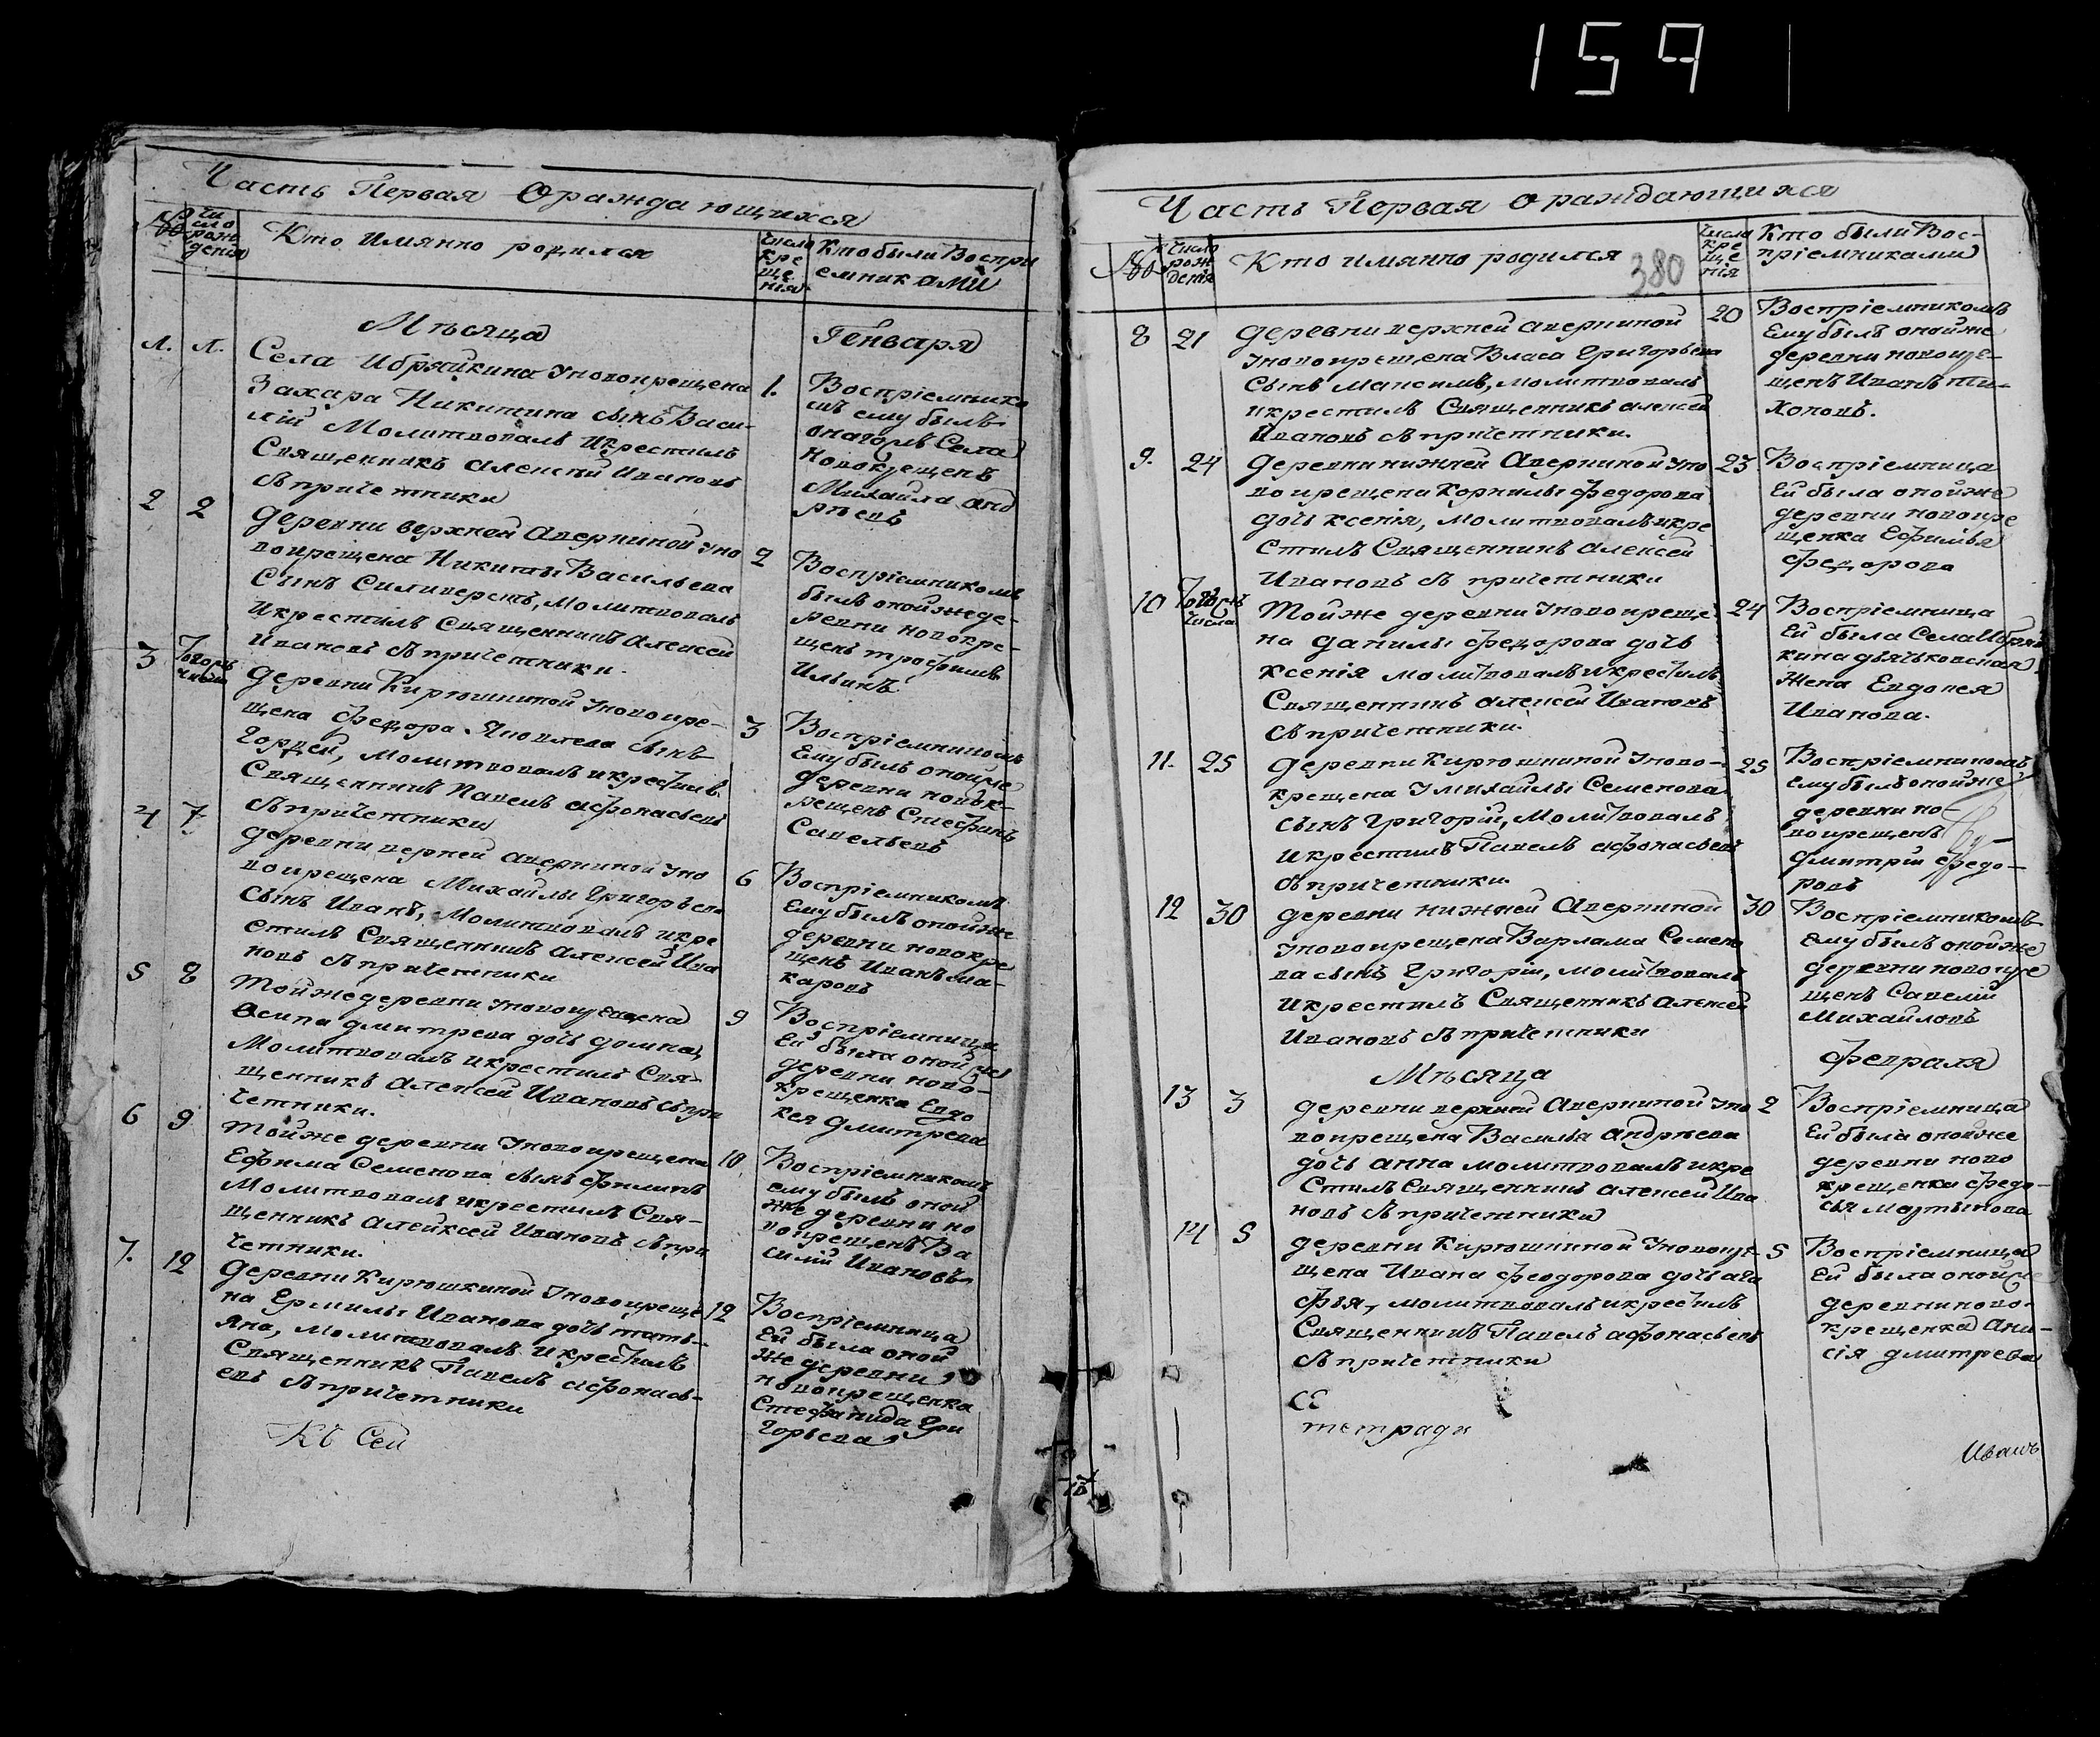 159
Часть Первая Ораждающихся
№ Число рождения
Кто Имянно родился
Число крещенія
Кто были Воспри
емниками
Мѣсяца
Генваря
1. 1.
Села Ибряйкина уновокрещена
Захара Никитина сынъ Васи-
лій Молитвовалъ Икрестилъ
Священникъ Алексей Ивановъ
съпричетники
1.
Воспріемнико
мъ ему былъ
Села
Новокрещенъ
Михайла Анд
рѣевъ
2 2
деревни верхней Аверкиной уно
вокрещена Никиты Васильева
Сынъ Силиверстъ, Молитвовалъ
Икрестилъ Священникъ Алексей
Ивановъ съпричетники.
2
Воспріемникомъ
былъ онойжеде-
ревни новокре-
щенъ трофимъ
Ильинъ
3
Тогожъ
числа
деревни Кирюшкиной уновокре-
щена федора Яковлева сынъ
Гордей, Молитвовалъ икрестилъ
Священникъ Павелъ Афонасьевъ
съпричетники
3
Воспріемникомъ
Ему былъ оной же
деревни новок-
рещенъ Стефанъ
Савельевъ
4 7
деревни верхней Аверкиной уно
вокрещена Михайлы Григорьева
Сынъ Иванъ, Молитвовалъ икре
стилъ Священникъ Алексей Ива
новъ съпричетники
6
Воспріемникомъ
Ему былъ онойже
деревни новокре
щенъ Иванъ Ма-
каровъ
5 8
Тойжедеревни уновокрещена
Осипа дмитрева дочь домна,
Молитвовалъ икрестилъ Свя-
щенникъ Алексей Ивановъ съпри
четники.
9
Воспріемница
Ей была оной же
деревни ново-
крещенка Евдо
кея дмитрева
6 9
Тойже деревни уновокрещена
Ефима Семенова сынъ филипъ
Молитвовалъ икрестилъ Свя-
щенникъ Алейксей Ивановъ съпри
четники.
10
Воспріемникомъ
ему былъ оной
же деревни но
вокрещенъ Ва
силій Ивановъ
7. 12
деревни Кирюшкиной уновокреще
на Ермилы Иванова дочь тать-
яна, молитвовалъ икрестилъ
Священникъ Павелъ Афонась-
евъ съпричетники
12
Воспріемница
Ей была оной
же деревни
новокрещенка
Стефанида Гри
горьева
Къ Сей
Часть Первая Ораждающихся
№ Число рождения
Кто имянно родился
380
Числа крещенія
Кто были Вос-
пріемниками
8 21
деревни верхней Аверкиной
уновокрещена Власа Григорьева
Сынъ Максимъ, молитвовалъ
икрестилъ Священникъ Алексей
Ивановъ съпричетники.
20
Воспріемникомъ
Ему былъ онойже
деревни новокре-
щенъ Иванъ ти-
хоновъ.
9. 24
деревни нижней Аверкиной уно
вокрещена Корнилы федорова
дочь ксенія, молитвовалъ икре
стилъ Священникъ Алексей
Ивановъ съ причетники
23
Воспріемница
Ей была онойже
деревни новокре
щенка Ефимья
федорова
10
Тогожъ
числа
Тойже деревни уновокреще-
на данилы федорова дочь
ксенія молитвовалъ икрестилъ
Священникъ Алексей Ивановъ
съпричетники.
24
Воспріемница
Ей была Села Ибряй
кина дьячьковская
жена Евдокея
Иванова.
11. 25
деревни Кирюшкиной уново-
крещена умихайлы Семенова
сынъ Григорій, Молитвовалъ
икрестилъ Павелъ Афонасьевъ
съпричетники.
25
Воспріемникомъ
ему былъ онойже
деревни но-
вокрещенъ
дмитрій федо-
ровъ
12 30
деревни нижней Аверкиной
уновокрещена Варлама Семено
ва сынъ Григорій, молитвовалъ
икрестилъ Священникъ Алексей
Ивановъ съпричетники
30
Воспріемникомъ
ему былъ онойже
деревни новокре
щенъ Савелій
Михайловъ
Мѣсяца
февраля
13 3
деревни верхней Аверкиной уно
вокрещена Василья Андрѣева
дочь анна молитвовалъ икре
стилъ Священникъ Алексей Ива
новъ съпричетники
2
Воспріемница
Ей была онойже
деревни ново
крещенка федо-
сья мартынова
14 5
деревни Кирюшкиной уновокре-
щена Ивана феодорова дочь ага
фья, молитвовалъ икрестилъ
Священникъ Павелъ Афонасьевъ
съпричетники
5
Воспріемница
Ей была оной же
деревни ново-
крещенка Ани-
сія дмитрева
тетради
Иванъ